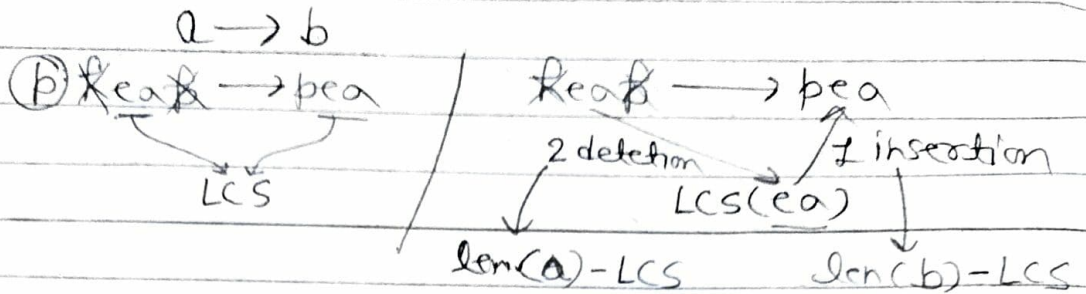 a → b
p heap → pea
LCS
heap → pea
2 deletion
1 insertion
LCS(ea)
len(a)-LCS
len(b)-LCS